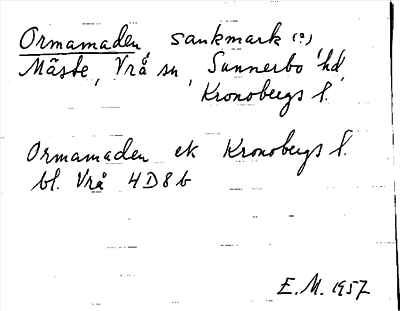 Ormamaden, sankmark (?),
Mäste, Vrå sn, Sunnerbo hd,
Kronobergs l.
Ormamaden ek Kronobergs l.
bl. Vrå 4D8b
E.M. 1957